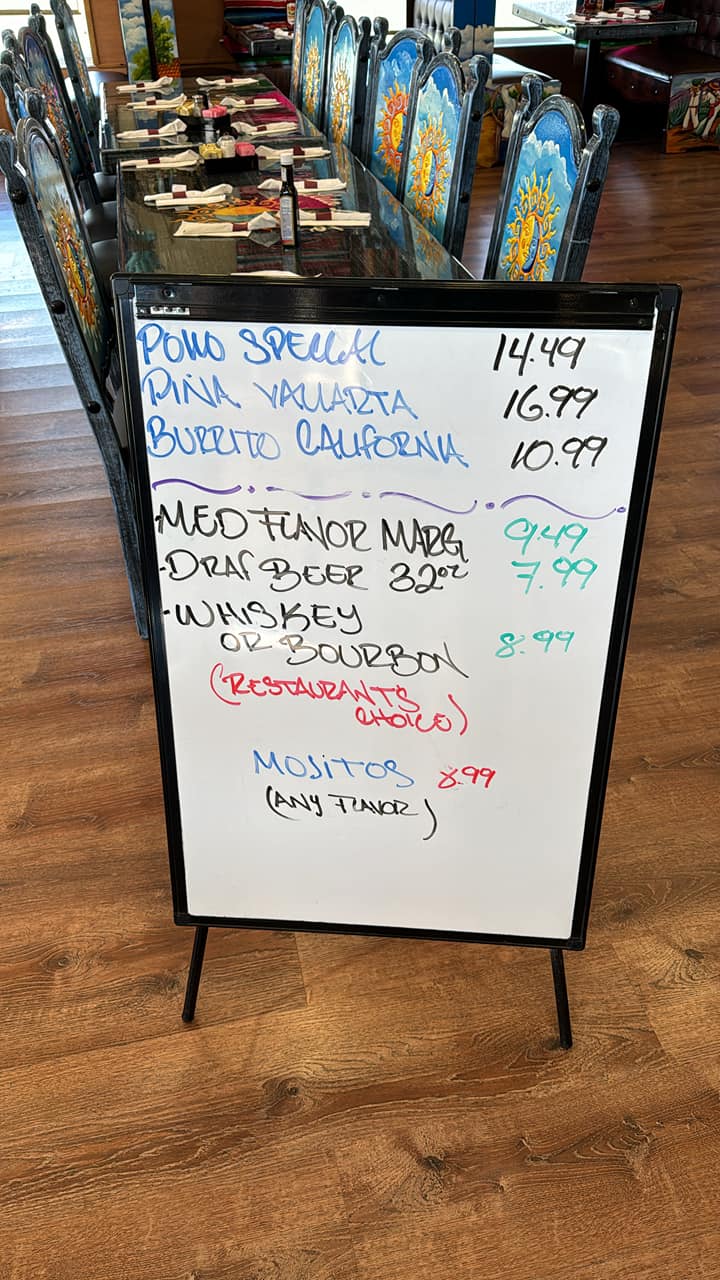 POLLO SPECIAL 14.49
PIÑA VALLARTA 16.99
BURRITO CALIFORNIA 10.99
-MED FLAVOR MARG 9.49
-DRAF BEER 32oz 7.99
-WHISKEY
OR BOURBON 8.99
(RESTAURANTS
CHOICE)
MOJITOS 8.99
(ANY FLAVOR)